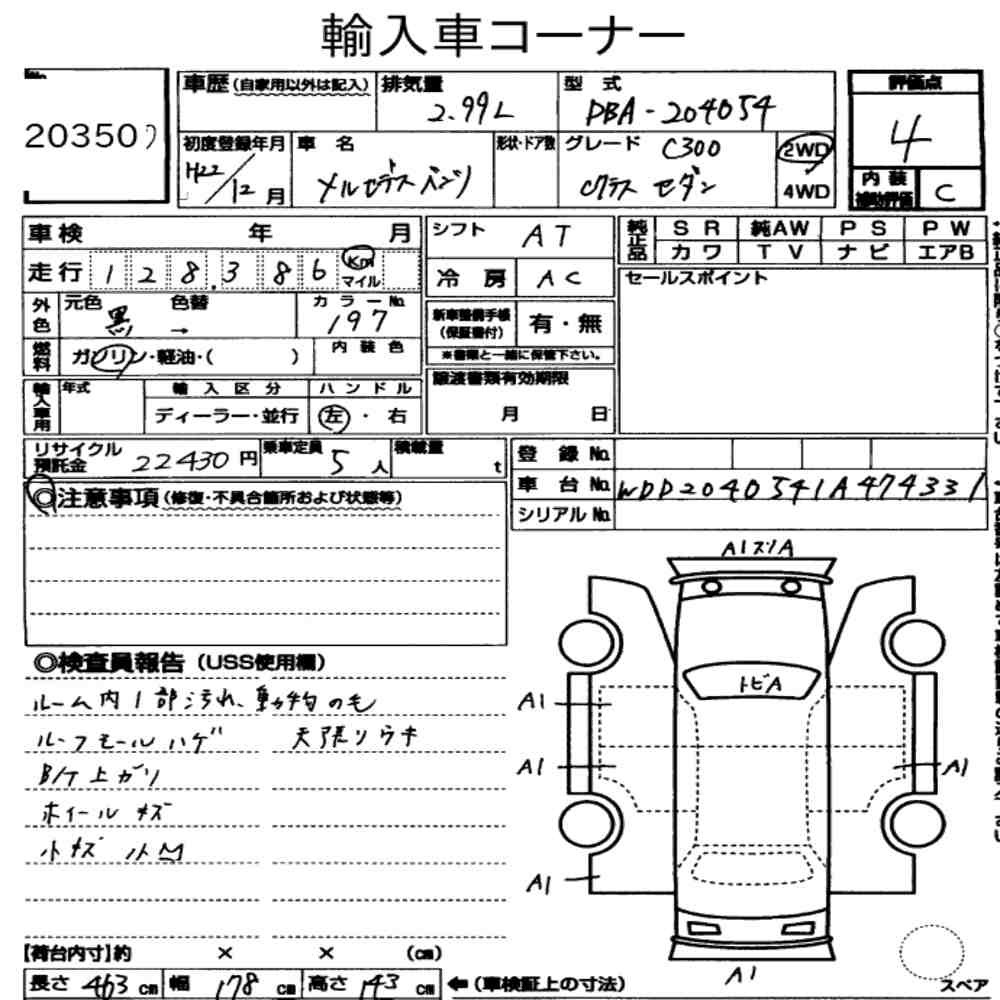 輸入車コーナー
No.
20350
車歴 (自家用以外は記入) 排気量 2.99L 型 式 DBA-204054
評価点 4
初度登録年月 H22/12月 車 名 メルセデスベンツ 形状・ドア数 グレード C300 Cクラス セダン 2WD 4WD
内装補助評価 C
車検 年 月
走行 1 2 8.3 8 6 Km マイル
外色 元色 黒 色替 → カラーNo. 197
燃料 ガソリン・軽油・( ) 内装色
輸入車用 年式 輸入区分 ディーラー・並行 ハンドル 左・右
シフト AT
冷房 AC
新車整備手帳 (保証書付) 有・無
※書類と一緒に保管下さい。
譲渡書類有効期限
月 日
純正品 SR 純AW PS PW
カワ TV ナビ エアB
セールスポイント
リサイクル預託金 22430円 乗車定員 5人 積載量 t
登録No.
車台No. WDD2040541A474331
シリアルNo.
◎注意事項 (修復・不具合箇所および状態等)
◎検査員報告 (USS使用欄)
ルーム内1部汚れ、動物の毛
ルーフモールハゲ 天張りウキ
B/T上ガリ
ホイールキズ
小キズ 小凹
A1スリA
トビA
A1
A1
A1
A1
A1
スペア
【荷台内寸】約 × × (cm)
長さ 463cm 幅 178cm 高さ 143cm ←(車検証上の寸法)